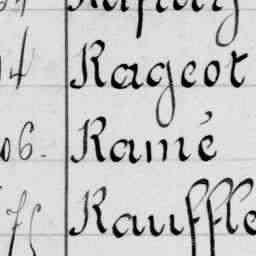 14 Rageot
06. Ramé
75 Rauffle